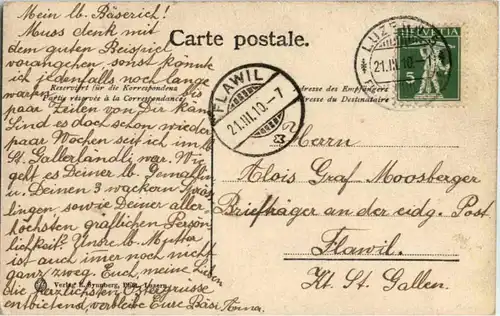 Mein lb. Bäserich!
Muss denk mit
dem guten Beispiel
vorangehen, sonst könnte
ich jedenfalls noch lange
warten bis ein
paar Zeilen von Dir kämen.
Sind es doch schon wieder
paar Wochen seit ich im lb.
St. Gallerländli war. Wie
geht es Deiner lb. Gemahlin
u. Deinen 3 wackern
lingen, sowie Deiner aller-
höchsten gräflichen Persön-
lichkeit. Unsre lb. Mutter
ist auch imer noch nicht
ganz zweg. Euch, meine Lieben
die herzlichsten Ostergrüsse
entbietend, verbleibe Eure Bäsi Anna.
Carte postale.
Reserviert für die Korrespondenz
Partie réservée à la Correspondance
Adresse des Empfängers
Adresse du Destinataire
FLAWIL
21.III.10.-7
LUZERN
21.III.10.
HELVETIA
5
Herrn
Alois Graf Moosberger
Briefträger an der eidg. Post
Flawil.
Kt. St. Gallen.
Verlag E. Synnberg, Luzern